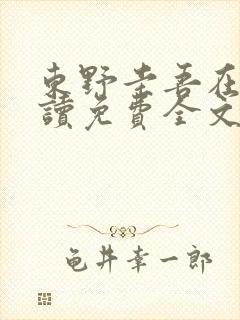 東野圭吾在
讀免費全文
龟井幸一郎